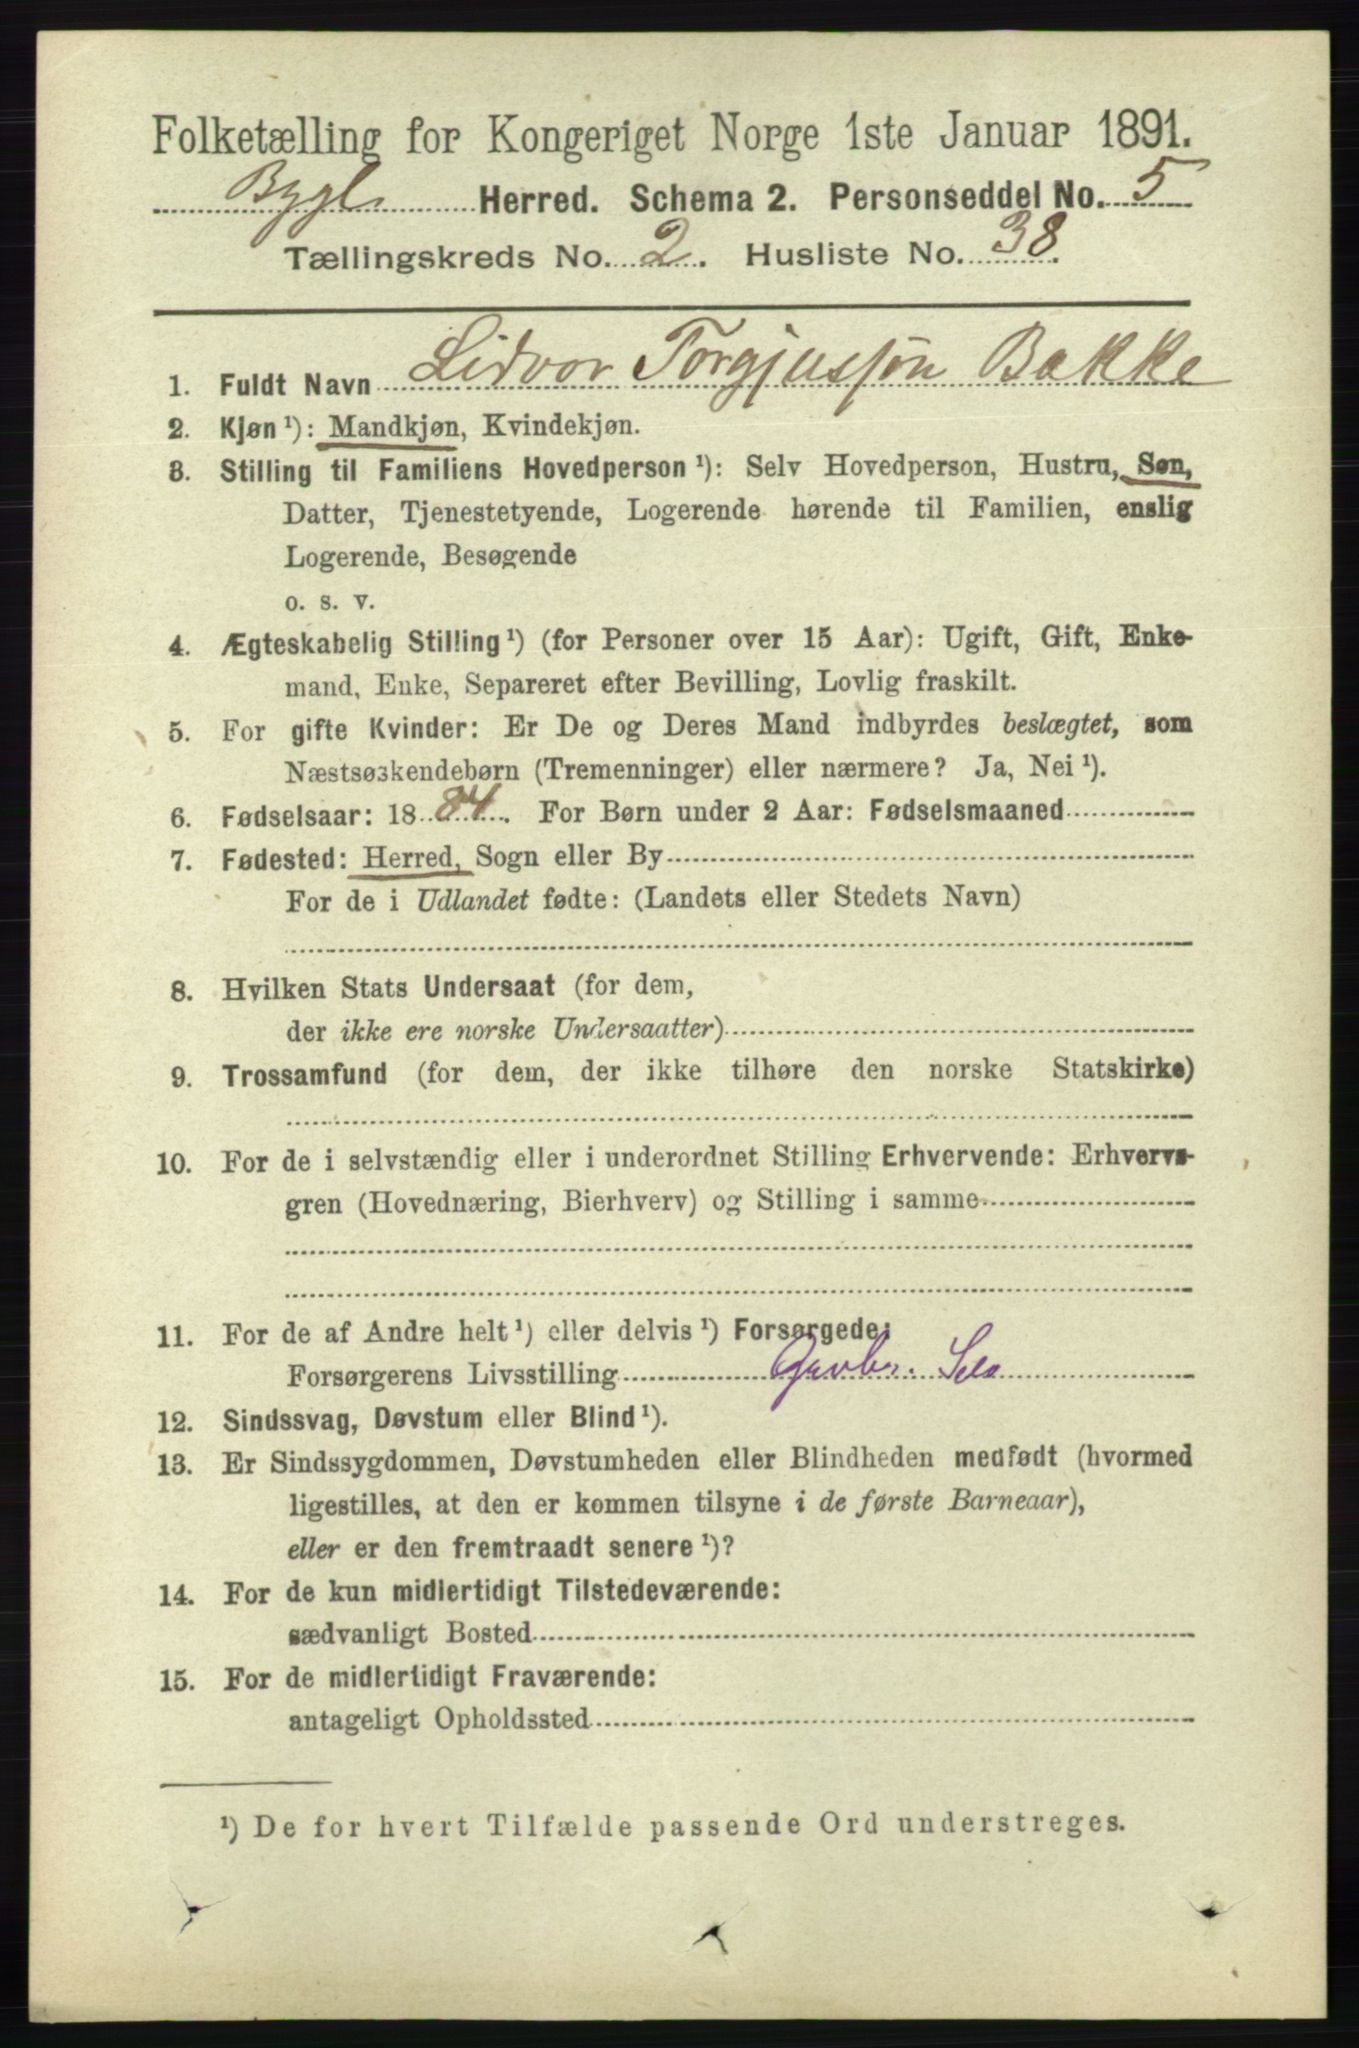 Folketælling for Kongeriget Norge 1ste Januar 1891.
Bygl. Herred. Schema 2. Personseddel No. 5
Tællingskreds No. 2. Husliste No. 38.
1. Fuldt Navn Lidvor Torgjussøn Bakke
2. Kjøn¹): Mandkjøn, Kvindekjøn.
3. Stilling til Familiens Hovedperson¹): Selv Hovedperson, Hustru, Søn,
Datter, Tjenestetyende, Logerende hørende til Familien, enslig
Logerende, Besøgende
o. s. v.
4. Ægteskabelig Stilling¹) (for Personer over 15 Aar): Ugift, Gift, Enke-
mand, Enke, Separeret efter Bevilling, Lovlig fraskilt.
5. For gifte Kvinder: Er De og Deres Mand indbyrdes beslægtet, som
Næstsøskendebørn (Tremenninger) eller nærmere? Ja, Nei¹).
6. Fødselsaar: 1884. For Børn under 2 Aar: Fødselsmaaned
7. Fødested: Herred, Sogn eller By
For de i Udlandet fødte: (Landets eller Stedets Navn)
8. Hvilken Stats Undersaat (for dem,
der ikke ere norske Undersaatter)
9. Trossamfund (for dem, der ikke tilhøre den norske Statskirke)
10. For de i selvstændig eller i underordnet Stilling Erhvervende: Erhvervs-
gren (Hovednæring, Bierhverv) og Stilling i samme
11. For de af Andre helt¹) eller delvis¹) Forsørgede:
Forsørgerens Livsstilling
12. Sindssvag, Døvstum eller Blind¹).
13. Er Sindssygdommen, Døvstumheden eller Blindheden medfødt (hvormed
ligestilles, at den er kommen tilsyne i de første Barneaar),
eller er den fremtraadt senere¹)?
14. For de kun midlertidigt Tilstedeværende:
sædvanligt Bosted
15. For de midlertidigt Fraværende:
antageligt Opholdssted
¹) De for hvert Tilfælde passende Ord understreges.